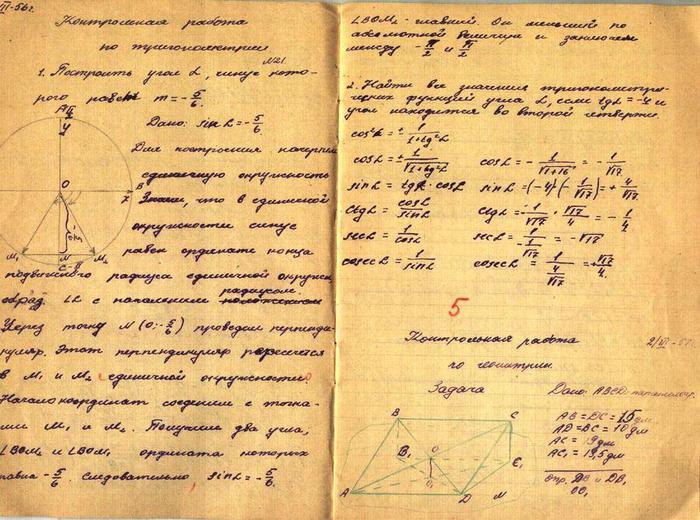 III-56г.
Контрольная работа
по тригонометрии
№21.
1. Построить угол L, синус кото-
рого равен m = -5/6.
Дано: sin L = -5/6
Для построения начертим
единичную окружность
Знаем, что в единичной
окружности синус
равен ординате конца
подвижного радиуса единичной окружн.
радиусом
образ. LL с начальным положением
Через точку N (0; -5/6) проведем перпенди-
куляр. Этот перпендикуляр пересечется
в M₁ и M₂ с единичной окружностью
Начало координат соединим с точка-
ми M₁ и M₂. Получим два угла;
LBOM₂ и LBOM₁ ордината которых
равна -5/6. Следовательно, sin L = -5/6.
A
y
O
B
x
M₁
N
M₂
C
LBOM₂ - главный. Он меньший по
абсолютной величине и заключен
между -π/2 и π/2
2. Найти все значения тригонометри-
ческих функций угла L, если tg L = -4 и
угол находится во второй четверти.
cos²L = ± 1/(1+tg²L)
cos L = ± 1/√(1+tg²L) cos L = - 1/√(1+16) = - 1/√17
sin L = tg L · cos L sin L = (-4)·(-1/√17) = + 4/√17
ctg L = cos L/sin L ctg L = - 1/√17 · √17/4 = - 1/4
sec L = 1/cos L sec L = 1/(-1/√17) = -√17
cosec L = 1/sin L cosec L = 1/(4/√17) = +√17/4.
5
Контрольная работа
по геометрии.
Задача
Дано: ABCD-параллелогр.
AB = DC = 15 дм
AD = BC = 10 дм
AC = 19 дм
AC₁ = 19,5 дм
Опр. DB и DB₁
OO₁
B
C
B₁
O
C₁
O₁
A
D
M